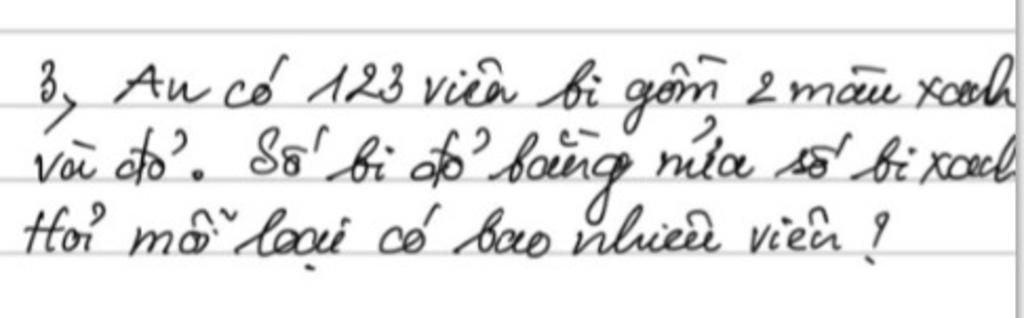 3, An có 123 viên bi gồm 2 màu xanh
và đỏ. Số bi đỏ bằng nửa số bi xanh
Hỏi mỗi loại có bao nhiêu viên?